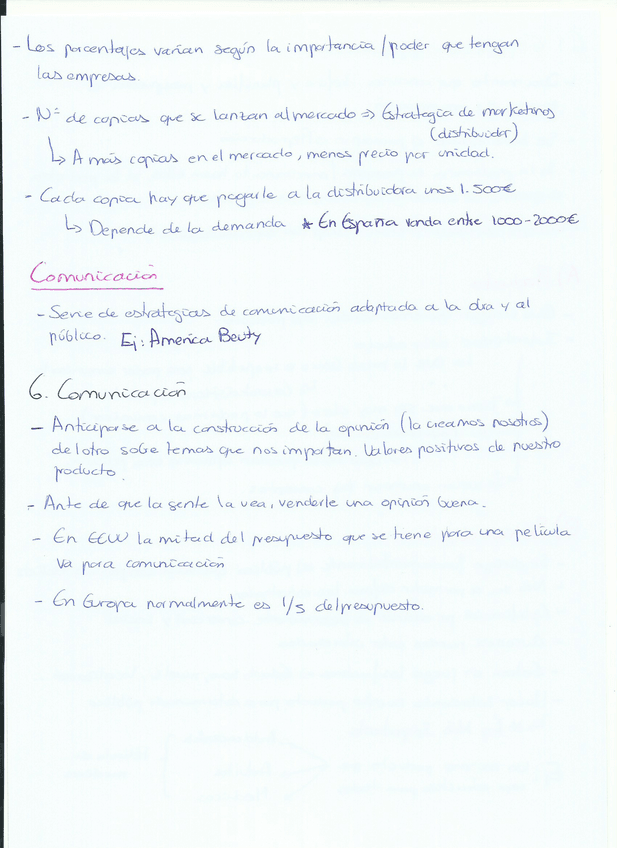 - Los porcentajes varían según la importancia / poder que tengan
las empresas.
- Nº de copias que se lanzan al mercado => Estrategia de marketing
(distribuidor)
↳ A más copias en el mercado, menos precio por unidad.
- Cada copia hay que pagarle a la distribuidora unos 1.500€
↳ Depende de la demanda * En España ronda entre 1000-2000€
Comunicación
- Serie de estrategias de comunicación adaptada a la obra y al
público. Ej: America Beuty
6. Comunicación
- Anticiparse a la construcción de la opinión (la creamos nosotros)
del otro sobe temas que nos importan. Valores positivos de nuestro
producto.
- Ante de que la gente la vea, venderle una opinión buena.
- En EEUU la mitad del presupuesto que se tiene para una película
va para comunicación
- En Europa normalmente es 1/5 del presupuesto.